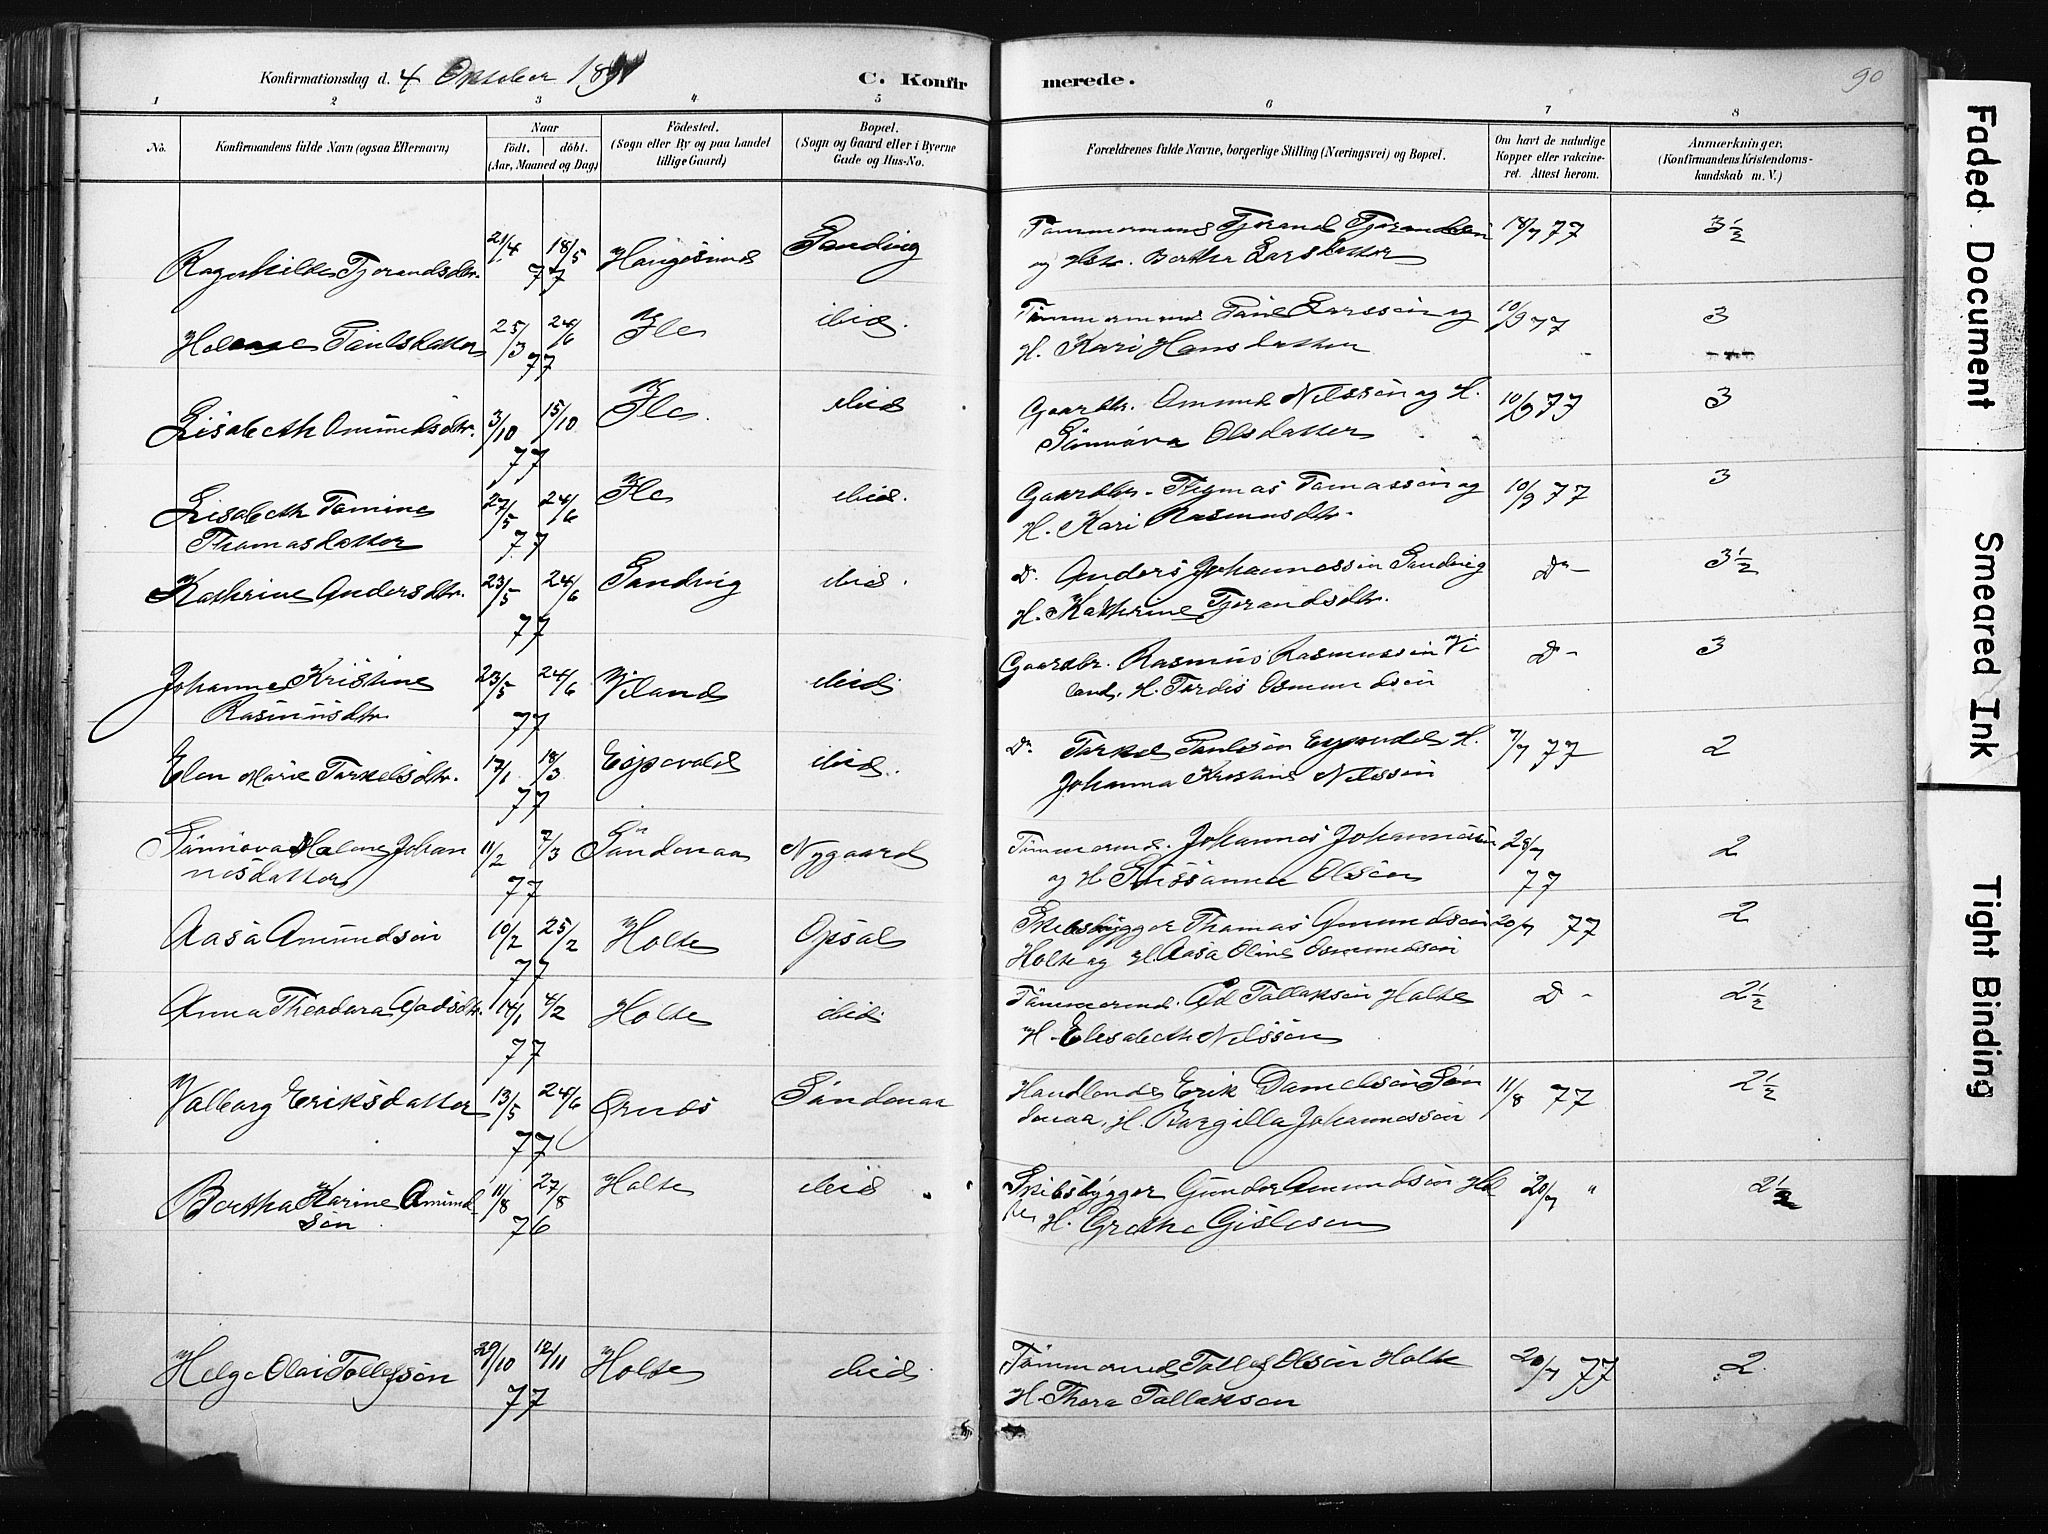 Konfirmationsdag d. 4 October 1891
C. Konfir merede.
90
1 2 3 4 5 6 7 8
No.
Konfirmandens fulde Navn (ogsaa Efternavn)
Naar
födt. döbt.
(Aar, Maaned og Dag)
Födested.
(Sogn eller By og paa Landet
tillige Gaard)
Bopæl.
(Sogn og Gaard eller i Byerne
Gade og Hus-No.
Forældrenes fulde Navne, borgerlige Stilling (Næringsvei) og Bopæl.
Om havt de naturlige
Kopper eller vakcine-
ret. Attest herom.
Anmærkninger.
(Konfirmandens Kristendoms-
kundskab m. V.)
Ragnhilde Tjorandsdtr. 21/4 18/5 77 Haugesund Sandvig
og Hstr. Berthe Larsdatter 18/7 77 3½
Paulsdatter 25/3 24/6 77 Ile ibid.
H. Kari Hansdatter 10/9 77 3
Lisabeth Omundsdtr. 3/10 15/10 77 Ile ibid
Gaardbr. Omund Nilssön og H.
Sönnöva Olsdatter 10/9 77 3
Lisabeth Tomine
Thomasdatter 27/5 24/6 77 Ile ibid.
Gaardbr. Thomas Tomassön og
H. Kari Rasmusdtr. 10/9 77 3
Kathrine Andersdtr. 23/5 24/6 77 Sandvig ibid.
Do. Anders Johannessön Sandvig
H. Kathrine Tjorandsdtr. Do - 3½
Johanne Kristine
Rasmusdtr. 23/5 24/6 77 Viland ibid
Gaardbr. Rasmus Rasmussön Vi
land, H. Tordis Osmundsön Do - 3
Elen Marie Torkelsdtr. 17/1 18/3 77 ibid.
Do. Torkel Paulsön H.
Johanna Kristine Nilssön 7/7 77 2
Sönnöva Helene Johan
nesdatter 11/2 7/3 77 Söndenaa Nygaard
Tömmermd. Johannes Johannessön
og H Sussanna Olsön 28/7 77 2
Aasa Amundsön 10/2 25/2 77 Holte Opsal
Skibsbygger Thomas Omundsön
Holte og H. Aasa Oline Osmundsön 20/7 77 2
Anna Theodora Aadsdtr. 14/1 4/2 77 Holte ibid
Tömmermd. Ad Tollaksön Holte
H. Elesabeth Nilssön Do - 2½
Valborg Eriksdatter 13/5 24/6 77 Ørnes Söndenaa
Handlende Erik Danielsön Sön
denaa, H. Borgilla Johannessön 11/8 77 2½
Bertha Karine Amund
sön 11/8 27/8 76 Holte ibid
Skibsbygger Gunder Amundsön Hol
te, H. Grethe Gislesen 20/7 " 2½
Helge Olai Tollefsön 29/10 12/11 77 Holte ibid
Tömmermd Tollef Olsön Holte
H. Thora Tollaksen 20/7 77 2
Faded Document
Smeared Ink
Tight Binding